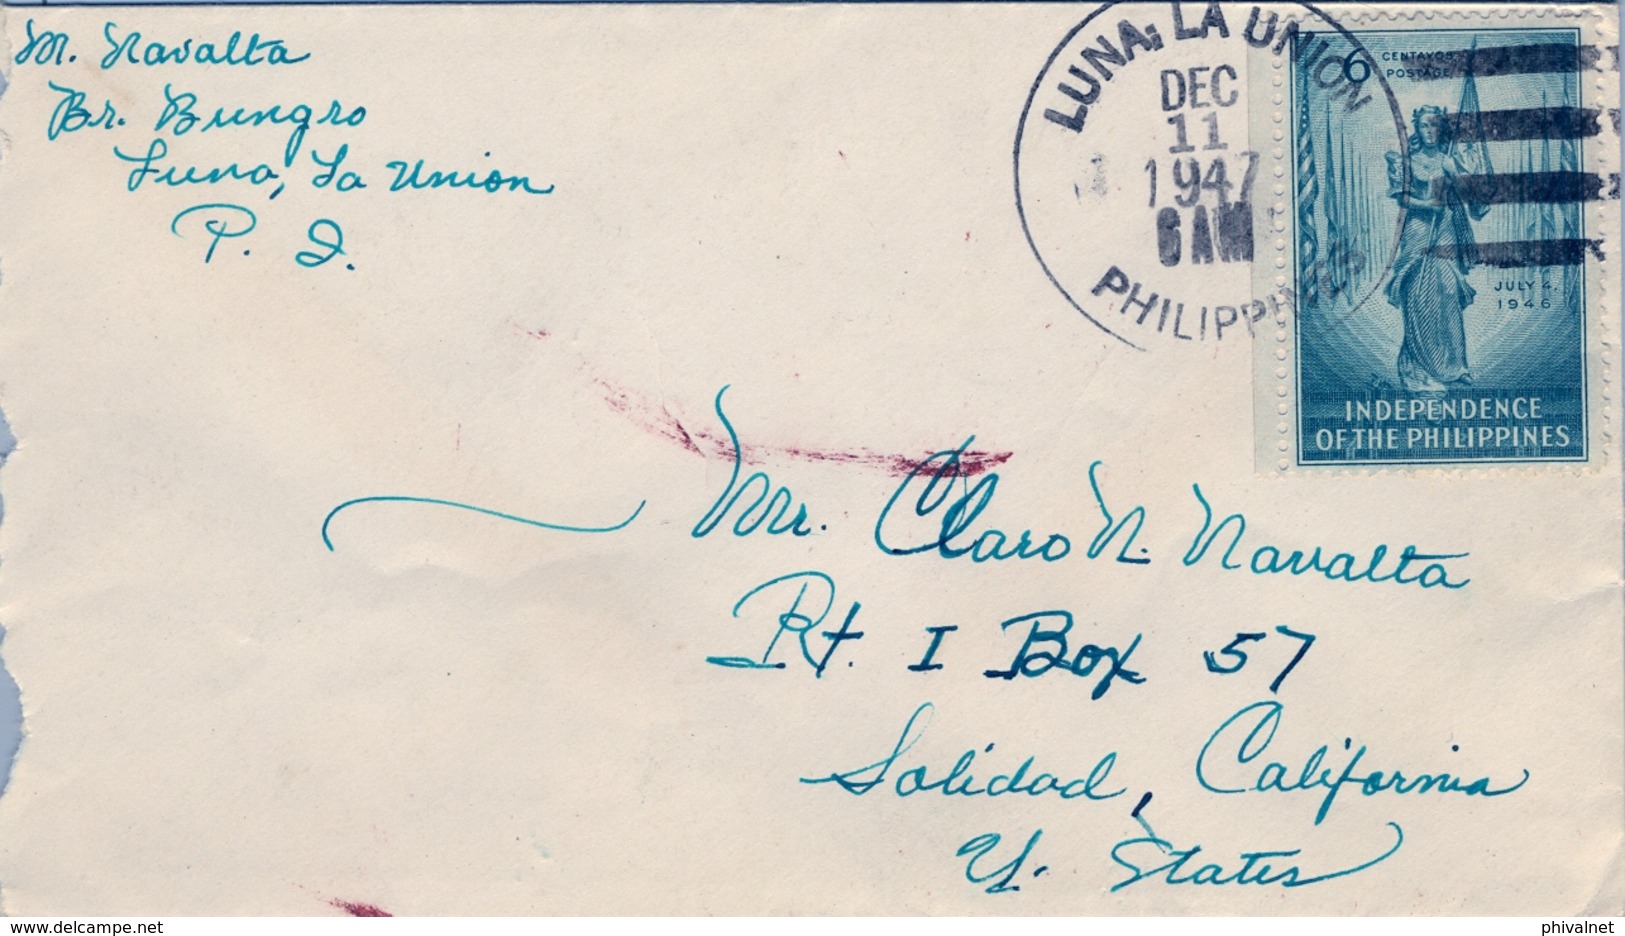 M. Navalta
Br. Bungro
Luna, La Union
P. I.
LUNA, LA UNION
DEC
11
1947
6 AM
PHILIPPINES
6 CENTAVOS
POSTAGE
JULY 4,
1946
INDEPENDENCE
OF THE PHILIPPINES
Mr. Claro N. Navalta
Rt. I Box 57
Solidad, California
U. States
phivalnet